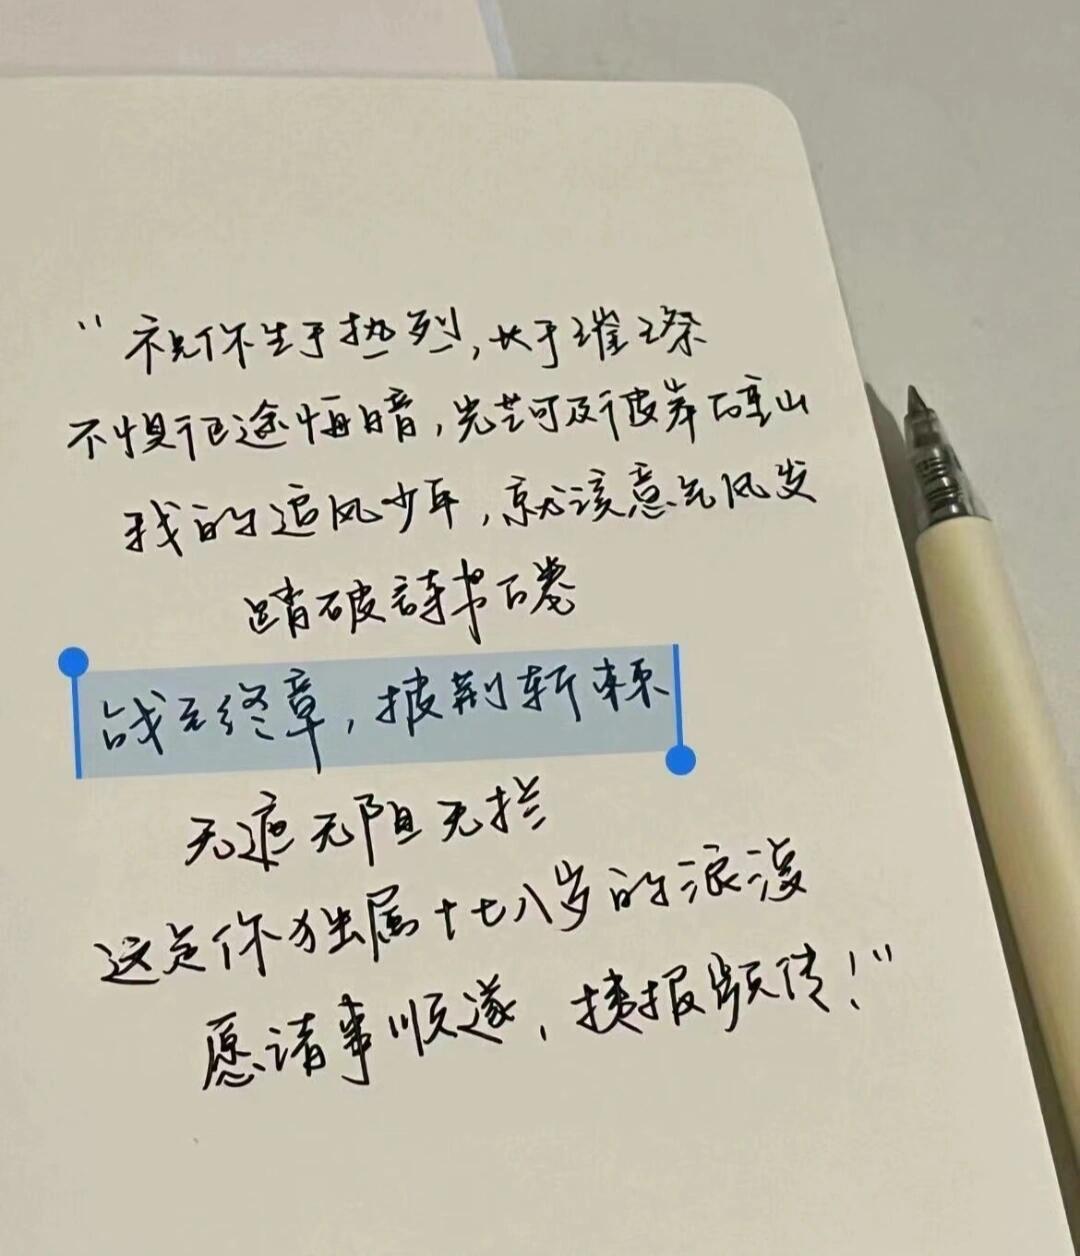 “祝你生于热烈,长于璀璨
不惧征途晦暗,光芒可及彼岸百重山
我的追风少年,就该意气风发
踏破詩书百卷
战至终章,披荆斩棘
无遮无阻无拦
这是你独属十七八岁的浪漫
愿诸事顺遂,捷报频传!”